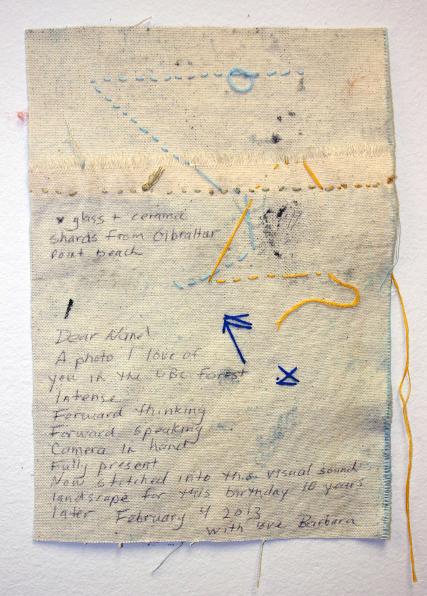 x glass + ceramic
shards from Gibraltar
Point beach
Dear
A photo I love of
you in the UBC Forest
Intense
Forward thinking
Forward speaking
Camera in hand
Fully present
Now stitched into this visual sound
landscape for this birthday 10 years
later February 4 2013
with love Barbara
x